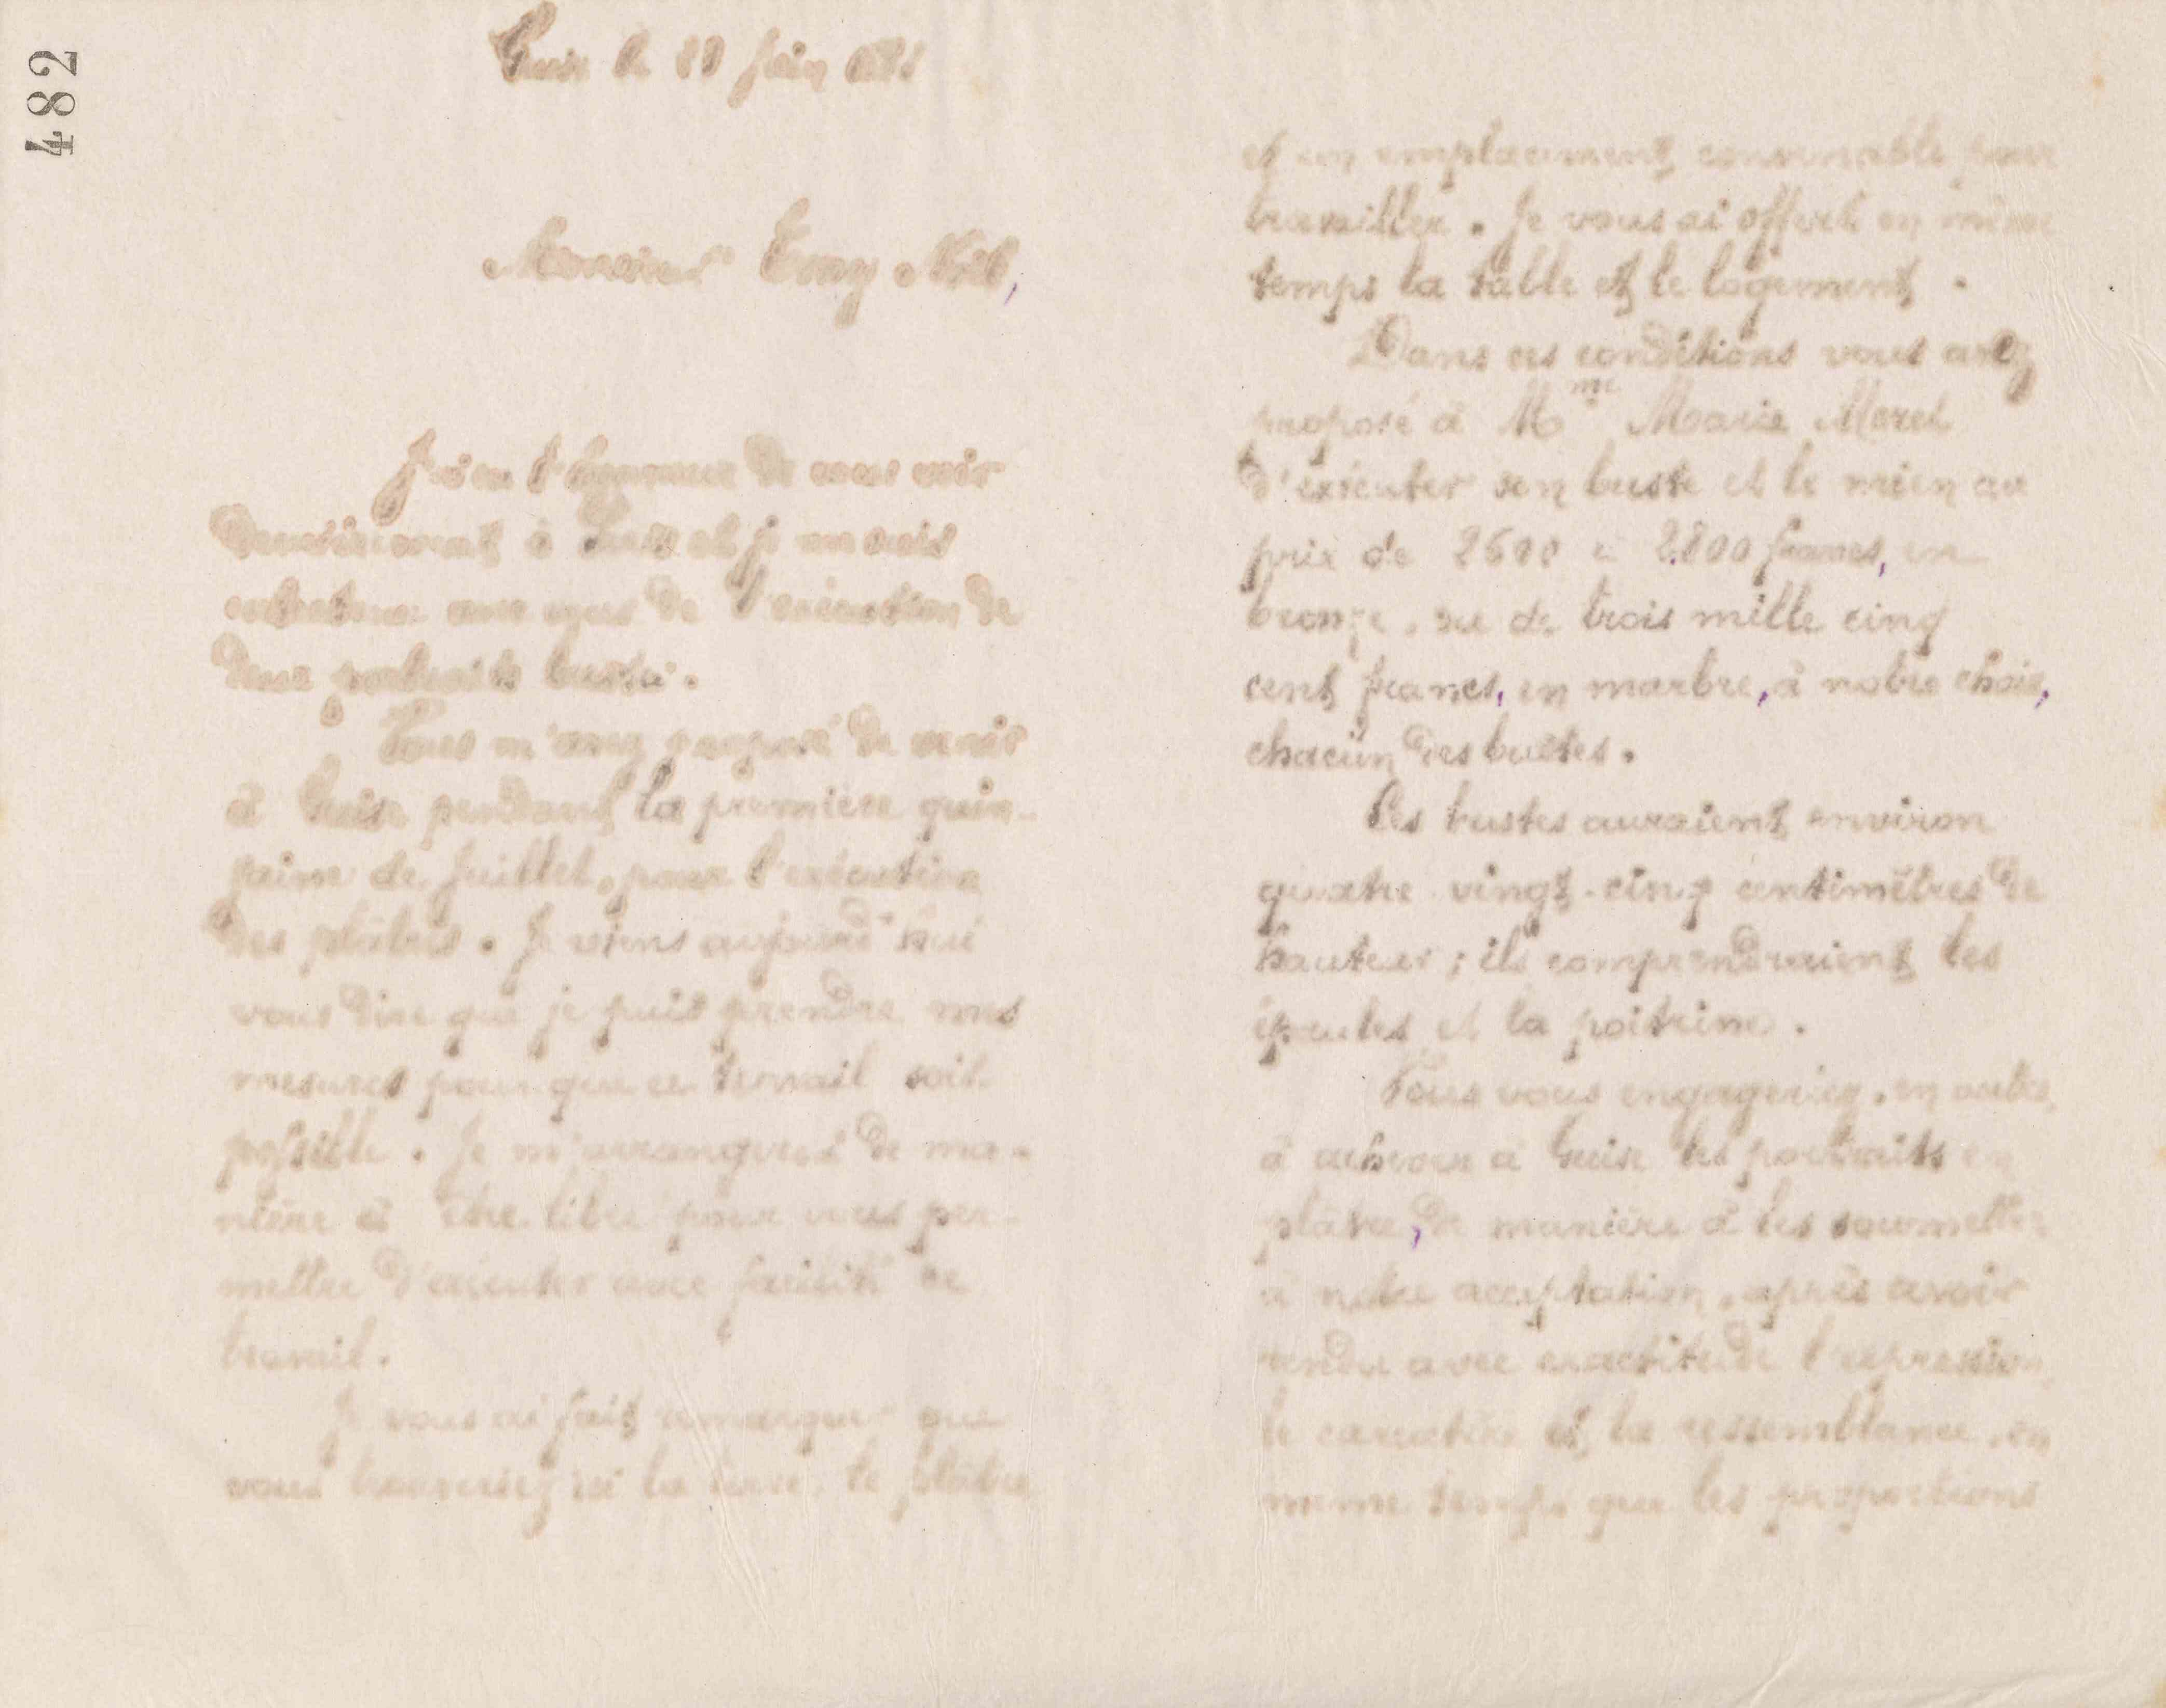 482
Guise le Juin
Monsieur Tony Noël,
J'ai eu l'honneur de vous voir
dernièrement à Paris et je me suis
entretenu avec vous de l'exécution de
deux portraits bustes.
Vous m'avez proposé de venir
à Guise pendant la première quin-
zaine de Juillet, pour l'exécution
des plâtres. Je viens aujourd'hui
vous dire que je puis prendre mes
mesures pour que ce travail soit
possible. Je m'arrangerai de ma-
nière à être libre pour vous per-
mettre d'exécuter avec facilité ce
travail.
Je vous ai fait remarquer que
vous trouveriez ici la terre, le plâtre
et un emplacement convenable pour
travailler. Je vous ai offert en même
temps la table et le logement.
Dans ces conditions vous avez
proposé à Mme Marie Moret
d'exécuter son buste et le mien au
prix de 2600 à 2.800 francs, en
bronze, ou de trois mille cinq
cent francs, en marbre, à notre choix,
chacun des bustes.
Ces bustes auraient environ
quatre vingt-cinq centimètres de
hauteur ; ils comprendraient les
épaules et la poitrine.
Vous vous engageriez, en outre,
à achever à Guise les portraits en
plâtre, de manière à les soumettre
à notre acceptation, après avoir
rendu avec exactitude l'expression,
le caractère et la ressemblance, en
même temps que les proportions